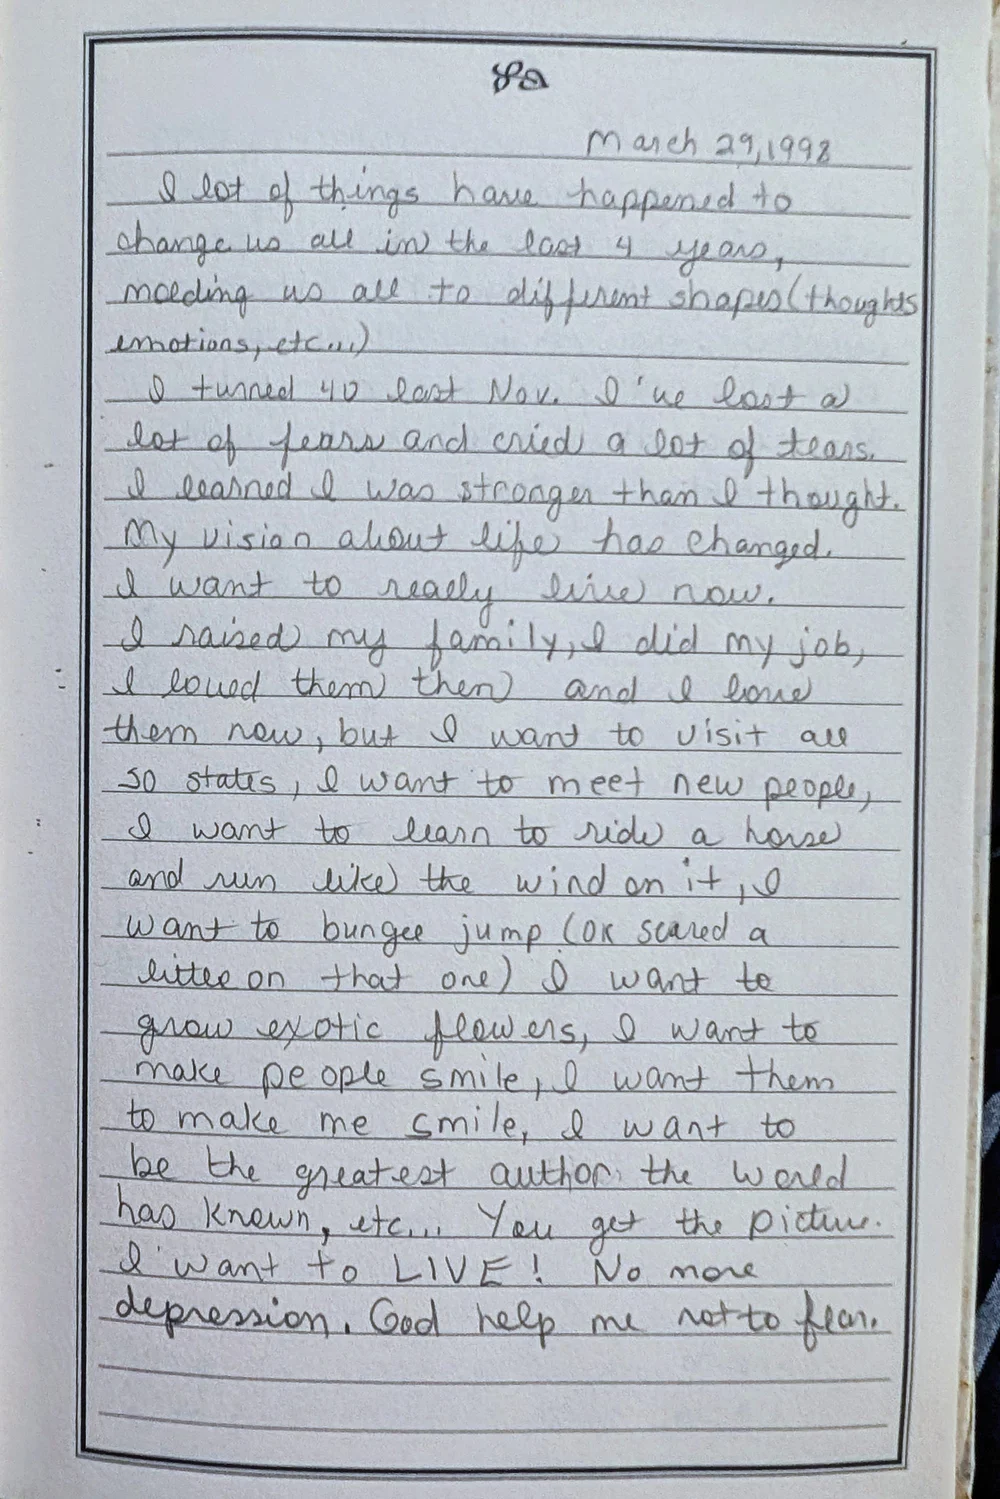 March 29, 1998
I lot of things have happened to
change us all in the last 4 years,
molding us all to different shapes (thoughts
emotions, etc...)
I turned 40 last Nov. I've lost a
lot of fears and cried a lot of tears.
I learned I was stronger than I thought.
My vision about life has changed.
I want to really live now.
I raised my family, I did my job,
I loved them then and I love
them now, but I want to visit all
50 states, I want to meet new people,
I want to learn to ride a horse
and run like the wind on it, I
want to bungee jump (ok scared a
little on that one) I want to
grow exotic flowers, I want to
make people smile, I want them
to make me smile, I want to
be the greatest author the world
has known, etc... You get the picture.
I want to LIVE! No more
depression. God help me not to fear.